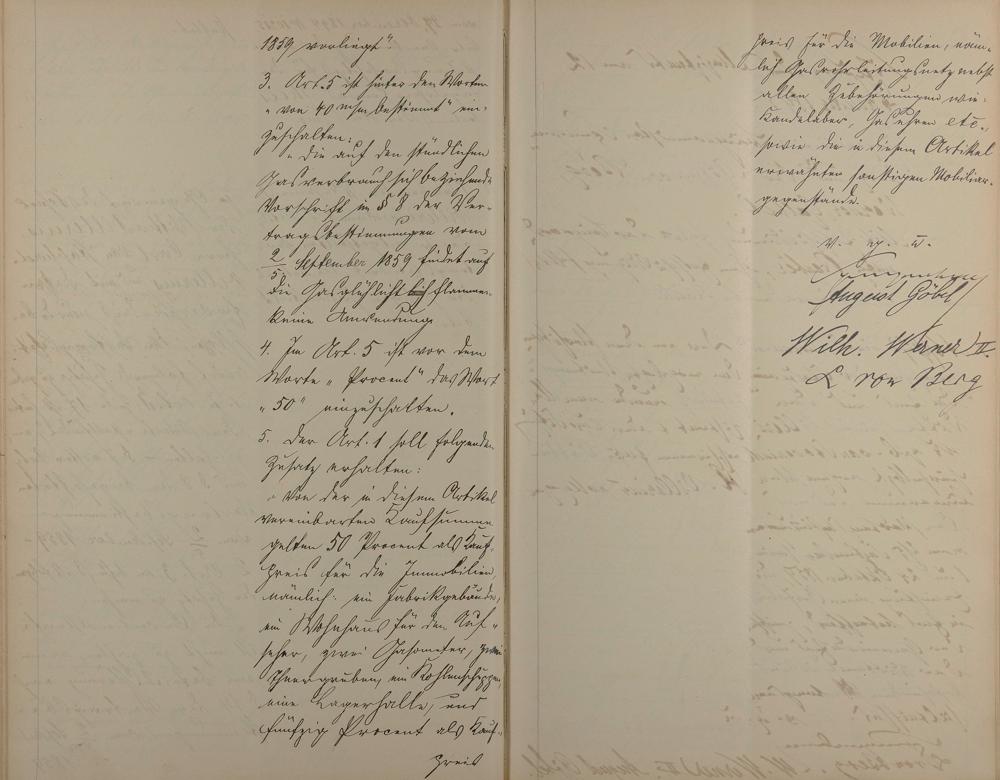 1859 vorliegt".
3. Art. 5 ist hinter den Worten
"von 40 m/m bestimmt" ein-
zuschalten:
"Die auf den stündlichen
Gasverbrauch sich beziehende
Vorschrift in § 8 der Ver-
tragsbestimmungen vom
2/5 September 1859 findet auf
die Gasglühlicht Flammen
keine Anwendung
4. Im Art. 5 ist vor dem
Worte "Procent" das Wort
"50" einzuschalten.
5. Der Art. 1 soll folgenden
Zusatz erhalten:
"Von der in diesem Artikel
vereinbarten Kaufsumme
gelten 50 Procent als Kauf-
preis für die Immobilien,
nämlich: ein Fabrikgebäude,
ein Wohnhaus für den Auf-
seher, zwei Gasometer, zwei
Theergruben, ein Kohlenschuppen,
eine Lagerhalle, und
fünfzig Procent als Kauf-
preis
preis für die Mobilien, näm-
lich Gasrohrleitungsnetz nebst
allen Zubehörungen wie
Kandelaber, Gasuhren etc.,
sowie die in diesem Artikel
erwähnten sonstigen Mobiliar-
gegenstände.
v. g. u.
August Göbel
Wilh. Werner II.
L von Berg